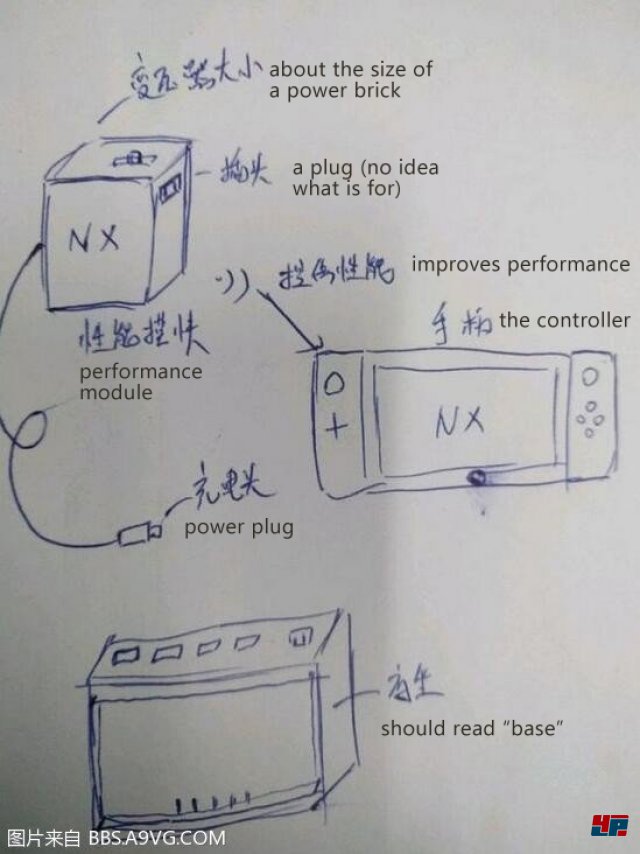 变压器大小
about the size of
a power brick
插头
a plug (no idea
what is for)
NX
提高性能
improves performance
手柄
the controller
性能模块
performance
module
NX
充电头
power plug
底座
should read "base"
图片来自 BBS.A9VG.COM
4P